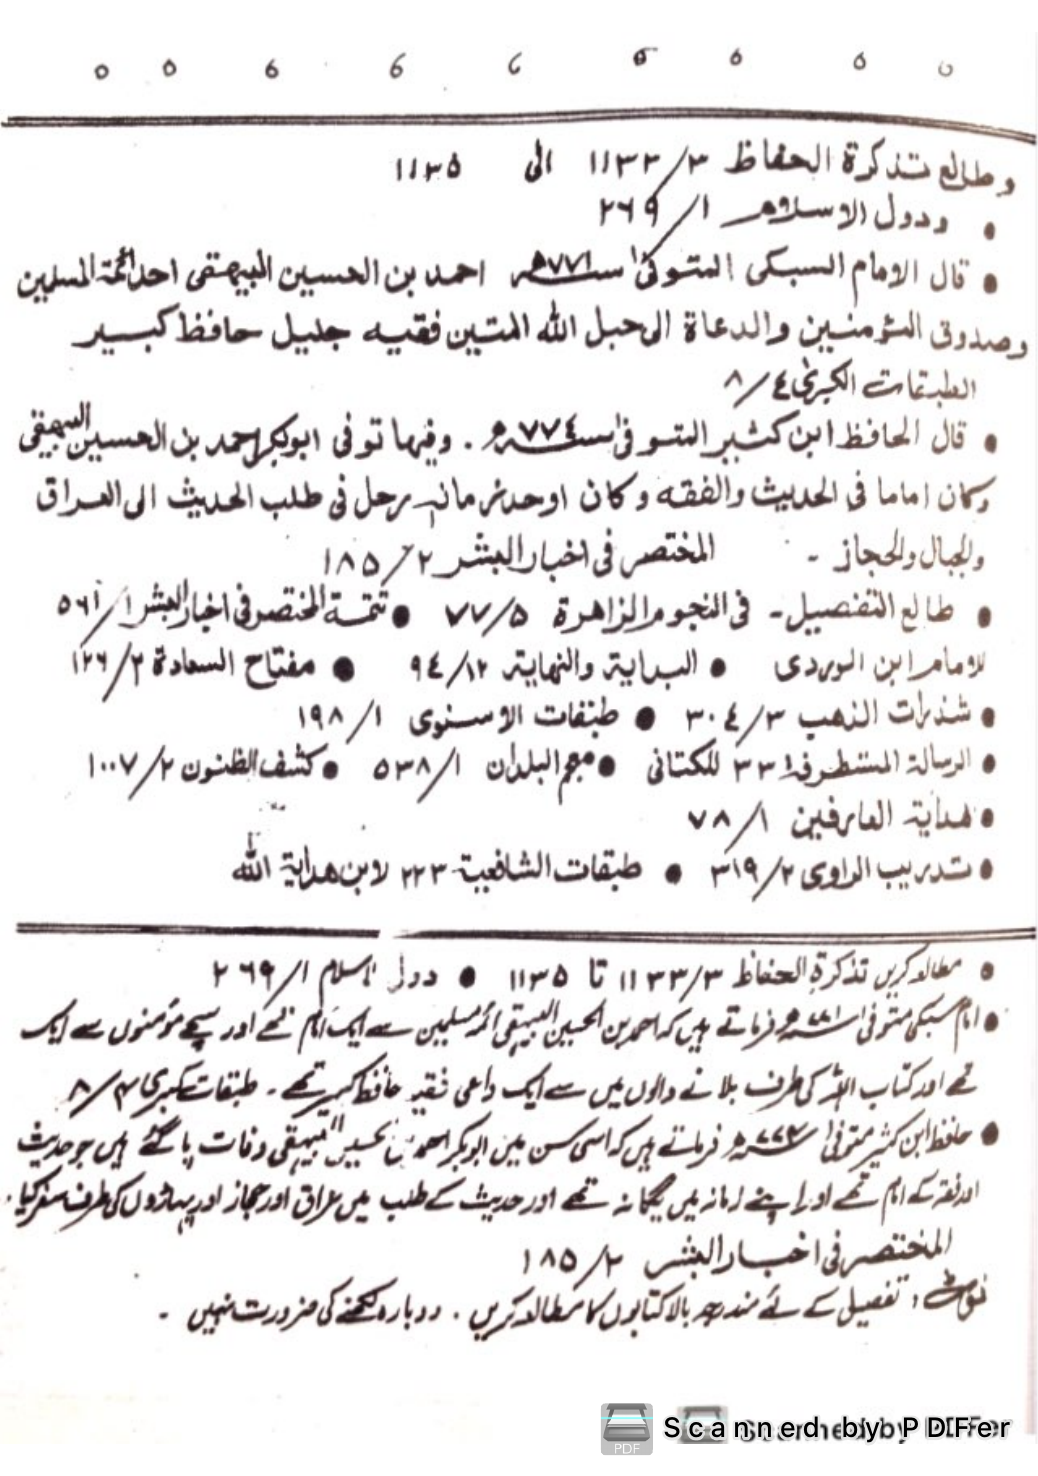 وطالع تذكرة الحفاظ ٣/١١٣٣ الى ١١٣٥
• ودول الاسلام ١/٢٦٩
• قال الامام السبكى المتوفىٰ سنة ٧٧١ه احمد بن الحسين البيهقى احد ائمة المسلمين
وصدوق المؤمنين والدعاة الى حبل الله المتين فقيه جليل حافظ كبير
الطبقات الكبرىٰ ٤/٨
• قال الحافظ ابن كثير المتوفىٰ سنة ٧٧٤ه . وفيها توفى ابوبكر احمد بن الحسين البيهقى
وكان اماما فى الحديث والفقه وكان اوحد زمانه رحل فى طلب الحديث الى العراق
والجبال والحجاز - المختصر فى اخبار البشر ٢/١٨٥
• طالع التفصيل - فى النجوم الزاهرة ٥/٧٧ • تتمة المختصر فى اخبار البشر ١/٥٦١
للامام ابن الوردى • البداية والنهاية ١٢/٩٤ • مفتاح السعادة ٢/١٢٦
• شذرات الذهب ٣/٣٠٤ • طبقات الاسنوى ١/١٩٨
• الرسالة المستطرفة ٣٣ للكتانى • معجم البلدان ١/٥٣٨ • كشف الظنون ٢/١٠٠٧
• هداية العارفين ١/٧٨
• تدريب الراوى ٢/٣١٩ • طبقات الشافعية ٢٢٣ لابن هداية الله
• مطالعہ کریں تذکرۃ الحفاظ ٣/١١٣٣ تا ١١٣٥ • دول اسلام ١/٢٦٩
• امام سبکی متوفیٰ سنہ ٧٧١ھ فرماتے ہیں کہ احمد بن الحسین البیہقی ائمہ مسلمین سے ایک امام تھے اور سچے مؤمنوں سے ایک
تھے اور کتاب اللہ کی طرف بلانے والوں میں سے ایک داعی فقیہ حافظ کبیر تھے - طبقات کبری ٤/٨
• حافظ ابن کثیر متوفیٰ سنہ ٧٧٤ھ فرماتے ہیں کہ اسی سن میں ابوبکر احمد بن حسین البیہقی وفات پا گئے ہیں جو حدیث
اور فقہ کے امام تھے اور اپنے زمانہ میں یگانہ تھے اور حدیث کے طلب میں عراق اور حجاز اور پہاڑوں کی طرف سفر کیا .
المختصر فی اخبار البشر ٢/١٨٥
نوٹ : تفصیل کے لئے مندرجہ بالا کتابوں کا مطالعہ کریں . دوبارہ لکھنے کی ضرورت نہیں -
PDF
Scanned by PDFer